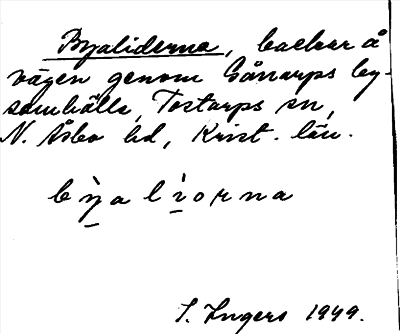 Byaliderna, backar å
vägen genom Sånarps by-
samhälle, Tostarps sn,
N. Åsbo hd, Krist. län.
bỳ̱alì̱orna
I. Ingers 1949.